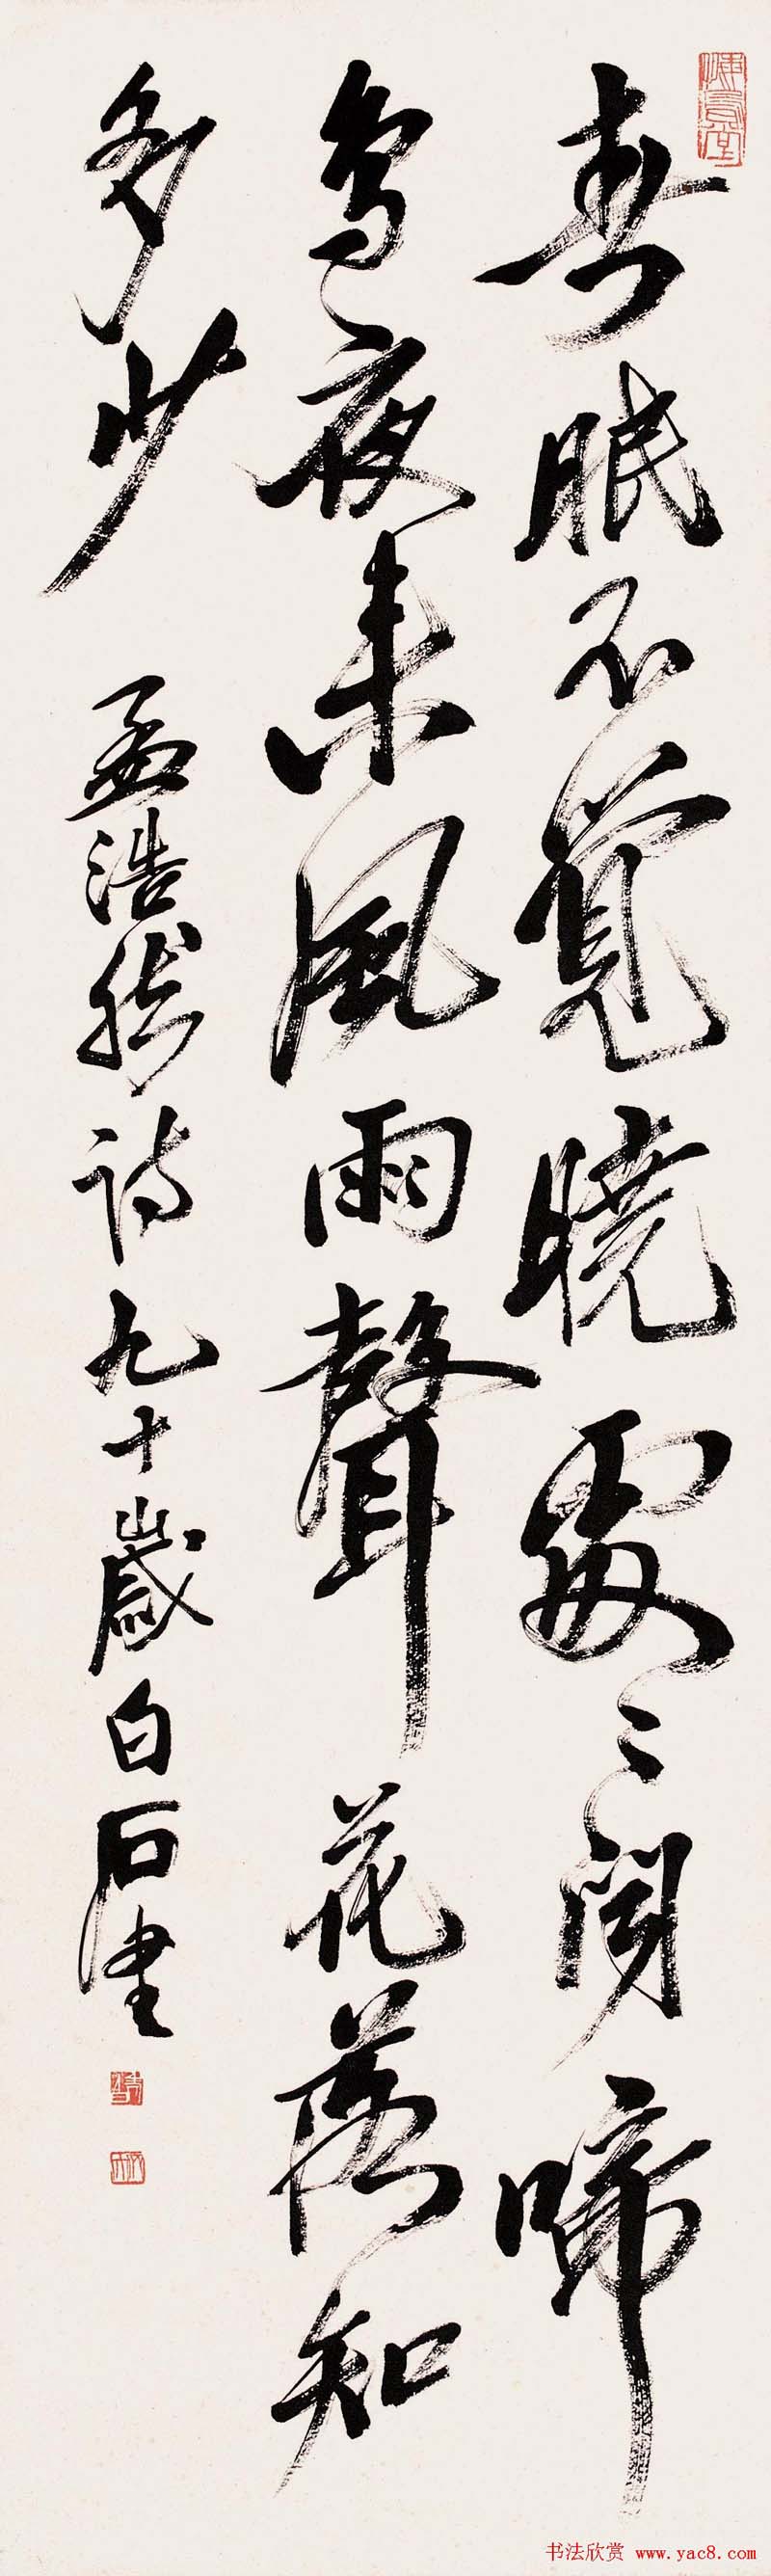 春眠不覺曉處〻聞啼
鳥夜来風雨聲花落知
多少
孟浩然詩九十歲白石書
书法欣赏 www.yac8.com